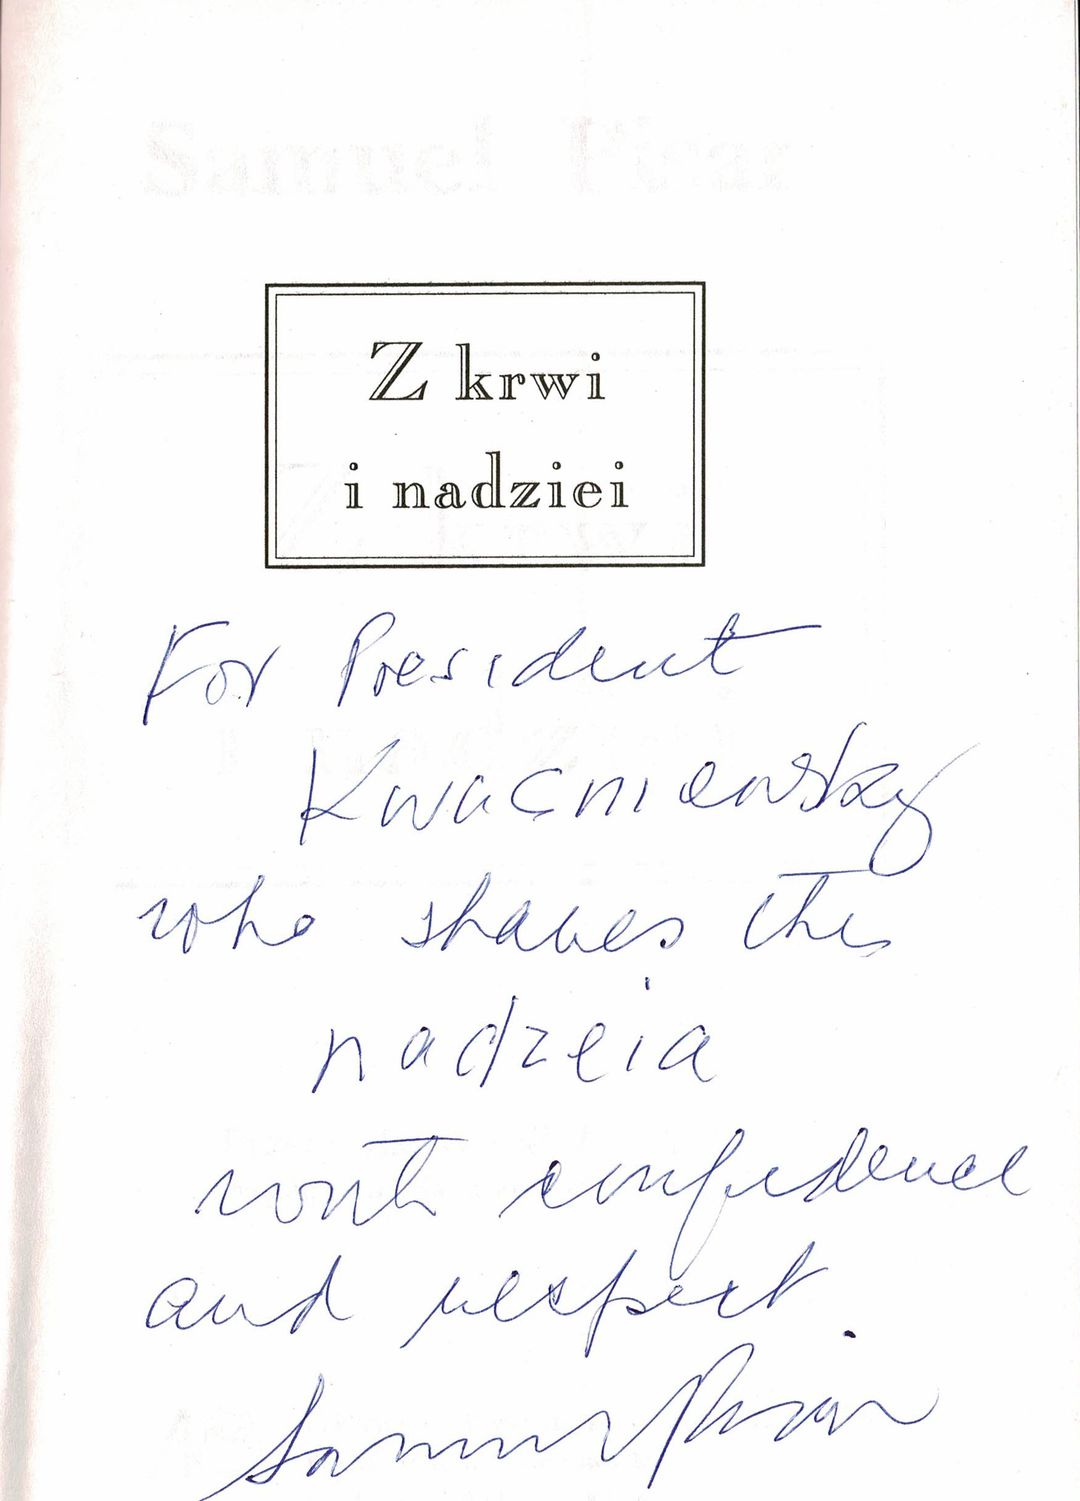 Samuel Pisar
Z krwi
i nadziei
For President
Kwacniewsky
who shares this
nadzeia
with confidence
and respect
Samuel Pisar